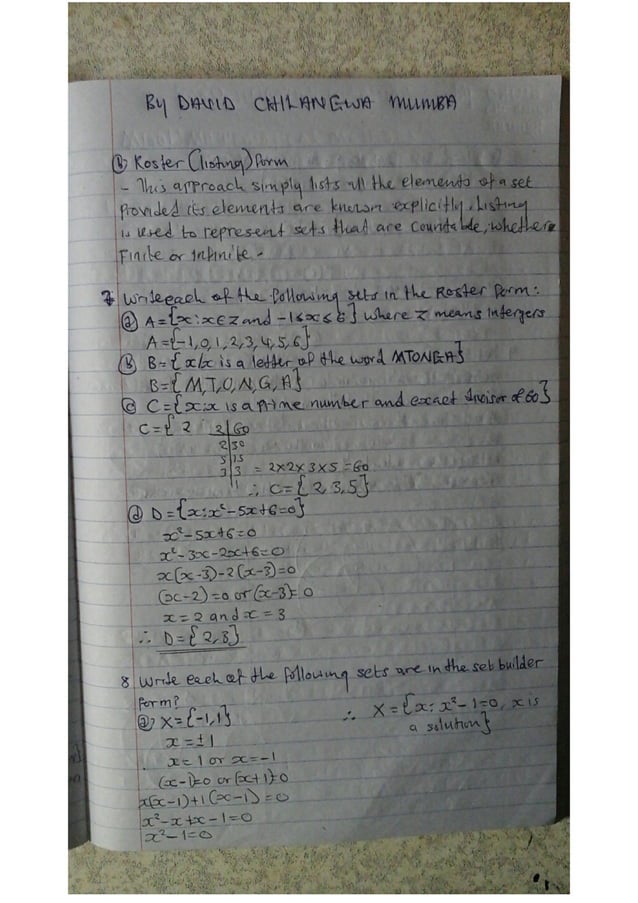 By DAVID CHILANGWA MUMBA
(b) Roster (listing) form
- This approach simply lists all the elements of a set
provided its elements are known explicitly. Listing
is used to represent sets that are countable, whethere
Finite or Infinite.
7 Write each of the following sets in the Roster form:
(a) A={x:x∈Z and -1≤x≤6} where Z means Intergers
A={-1,0,1,2,3,4,5,6}
(b) B={x/x is a letter of the word MTONGA}
B={M,T,O,N,G,A}
(c) C={x:x is a prime number and exact divisor of 60}
C={ 2 2|60
2|30
5|15
3|3 = 2×2×3×5=60
|1 ∴ C={2,3,5}
(d) D={x:x²-5x+6=0}
x²-5x+6=0
x²-3x-2x+6=0
x(x-3)-2(x-3)=0
(x-2)=0 or (x-3)=0
x=2 and x=3
∴ D={2,3}
8 Write each of the following sets are in the set builder
form?
(a) X={-1,1} ∴ X={x: x²-1=0, x is
a solution}
x=±1
x=1 or x=-1
(x-1)=0 or (x+1)=0
x(x-1)+1(x-1)=0
x²-x+x-1=0
x²-1=0